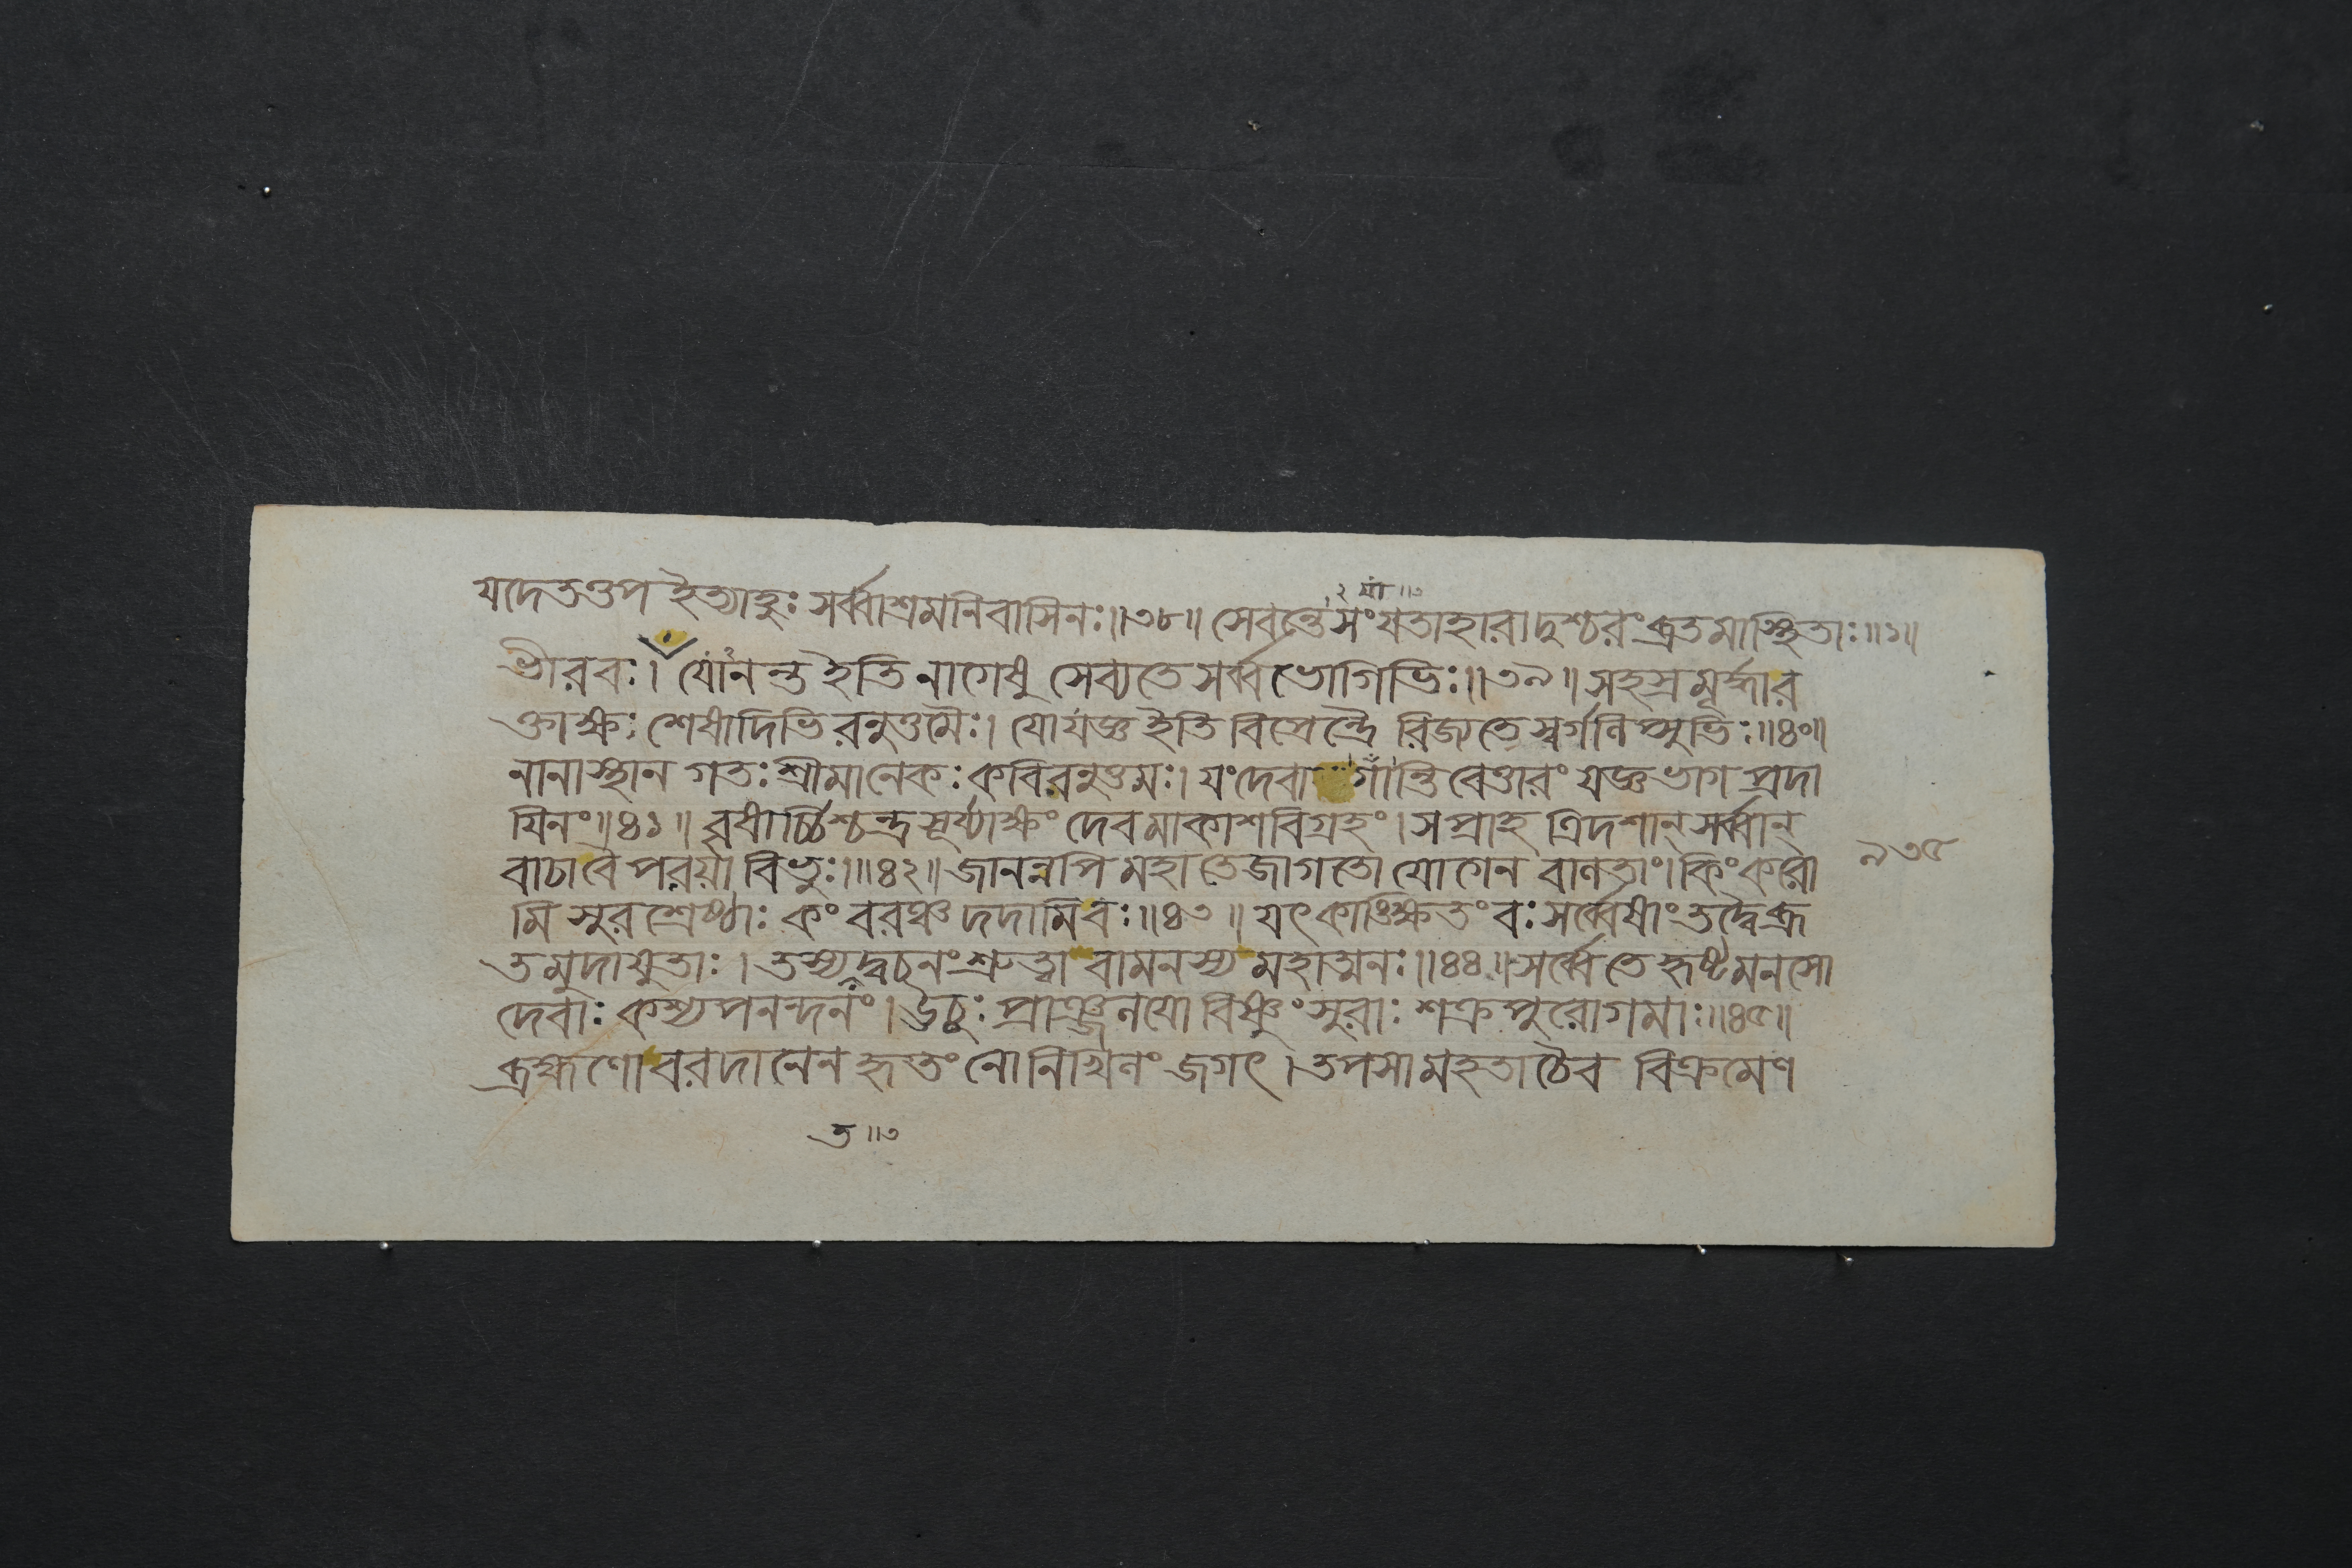 ২ য়াং ॥৩
যদেতত্তপ ইত্যাহুঃ সর্ব্বাশ্রমনিবাসিনঃ॥৩৮॥ সেবন্তে সংযতাহারাদুশ্চরং ব্রতমাস্থিতাঃ॥১॥
ভীরবঃ। যোঽনন্ত ইতি নাগেষু সেব্যতে সর্ব্বভোগিভিঃ॥৩৯॥ সহস্রমূর্দ্ধার
ক্তাক্ষঃ শেষাদিভিরনুত্তমৈঃ। যো যজ্ঞ ইতি বিপ্রেন্দ্রৈ রিজ্যতে স্বর্গলিপ্সুভিঃ॥৪০॥
নানাস্থান গতঃ শ্রীমানেকঃ কবিরনুত্তমঃ। যং দেবা গান্তি বেত্তারং যজ্ঞভাগ প্রদা
যিনং॥৪১॥ বৃষার্চ্চিশ্চন্দ্রসূর্য্যাক্ষং দেবমাকাশবিগ্রহং। স প্রাহ ত্রিদশান্ সর্ব্বান্
বাচা বৈ পরয়া বিভুঃ॥৪২॥ জানন্নপি মহাতেজা গতো যোগেন বালতাং। কিং করো
মি সুরশ্রেষ্ঠাঃ কং বরঞ্চ দদামি বঃ॥৪৩॥ যৎকাঙ্ক্ষিতং বঃ সর্ব্বেষাং তদ্বৈ ব্রূ
ত মুদাযুতাঃ। তস্য তদ্বচনং শ্রুত্বা বামনস্য মহাত্মনঃ॥৪৪॥ সর্ব্বে তে হৃষ্টমনসো
দেবাঃ কশ্যপনন্দনং। ঊচুঃ প্রাঞ্জলয়ো বিষ্ণুং সুরাঃ শক্রপুরোগমাঃ॥৪৫॥
ব্রহ্মণো বরদানেন হৃতং নো নিখিলং জগৎ। তপসা মহতা চৈব বিক্রমেণ
ত॥৩
৯৩৫